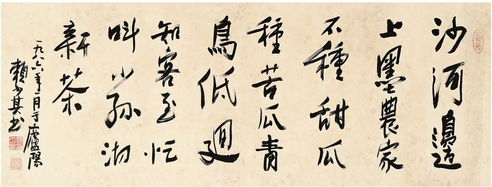 沙河邊
上墨農家
不種甜瓜
種苦瓜青
鳥低迴
知客至忙
叫小孫沏
新茶
一九八六年月于廬陽
賴少其書